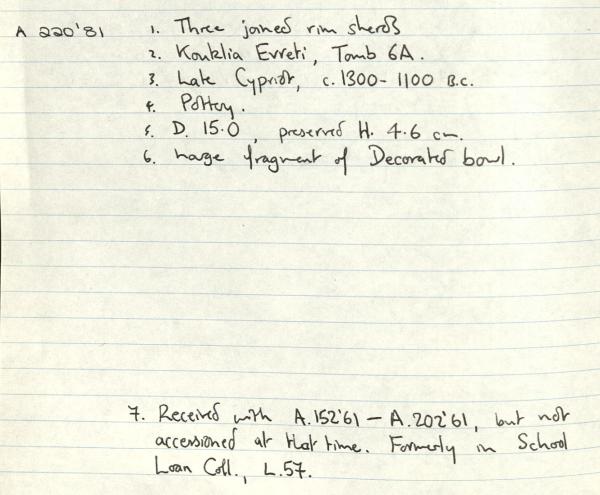 A 220'81 1. Three joined rim sherds
2. Kouklia Evreti, Tomb 6A.
3. Late Cypriot, c. 1300-1100 B.C.
4. Pottery.
5. D. 15.0, preserved H. 4.6 cm.
6. Large fragment of Decorated bowl.
7. Received with A.152'61 – A.202'61, but not
accessioned at that time. Formerly in School
Loan Coll., L.57.